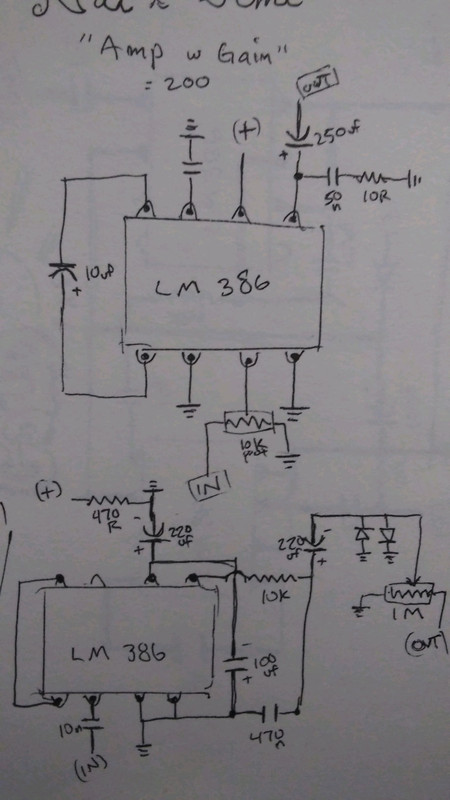 "Amp w Gain"
= 200
OUT
(+)
250uf
+
50n
10R
10uf
+
LM 386
10K
pot
IN
(+)
470
R
-
220
uf
+
220
uf
-
+
10K
1M
(OUT)
LM 386
-
100
uf
+
10n
470
n
(IN)